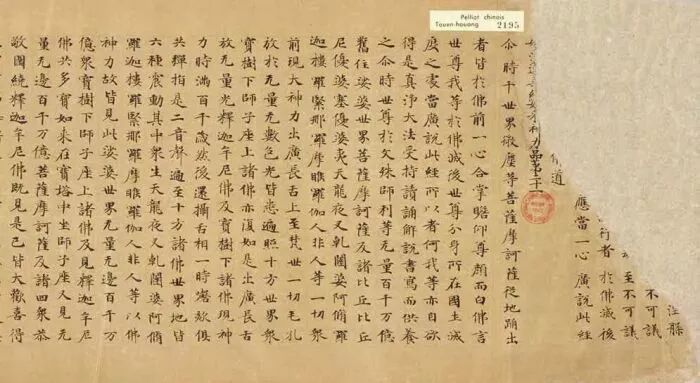 Pelliot chinois
Touen-houang 2195
不可議
至不可議
行者 於佛滅後
應當一心 廣說此經
佛道
力品第二十一
尒時千世界微塵等菩薩摩訶薩從地踊出
者皆於佛前一心合掌瞻仰尊顏而白佛言
世尊我等於佛滅後世尊分身所在國土滅
度之處當廣說此經所以者何我等亦自欲
得是真淨大法受持讀誦解說書寫而供養
之尒時世尊於文殊師利等无量百千万億
舊住娑婆世界菩薩摩訶薩及諸比丘比丘
尼優婆塞優婆夷天龍夜叉乹闥婆阿脩羅
迦樓羅緊那羅摩睺羅伽人非人等一切眾
前現大神力出廣長舌上至梵世一切毛孔
放於无量无數色光皆悉遍照十方世界眾
寶樹下師子座上諸佛亦復如是出廣長舌
放无量光釋迦牟尼佛及寶樹下諸佛現神
力時滿百千歲然後還攝舌相一時謦欬俱
共彈指是二音聲遍至十方諸佛世界地皆
六種震動其中眾生天龍夜叉乹闥婆阿脩
羅迦樓羅緊那羅摩睺羅伽人非人等以佛
神力故皆見此娑婆世界无量无邊百千万
億眾寶樹下師子座上諸佛及見釋迦牟尼
佛共多寶如來在寶塔中坐師子座又見无
量无邊百千万億菩薩摩訶薩及諸四眾恭
敬圍繞釋迦牟尼佛既見是已皆大歡喜得